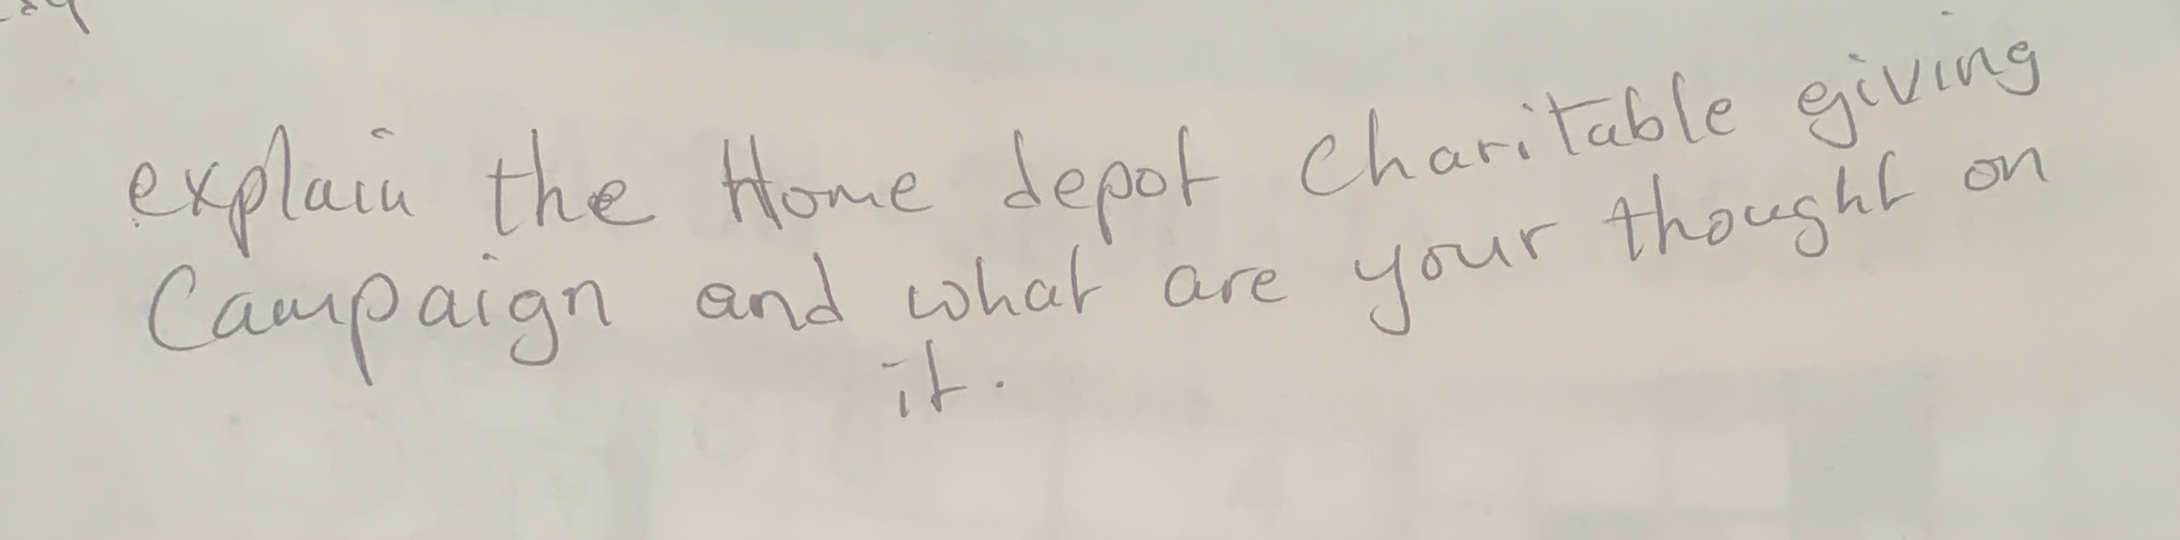 explain the Home depot Charitable giving
Campaign and what are your thought on
it.